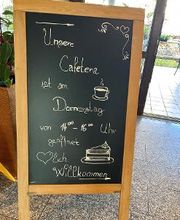 Unsere
Cafeteria
ist am
Donnerstag
von 14⁰⁰ - 16⁰⁰ Uhr
geöffnet
♡lich
Willkommen